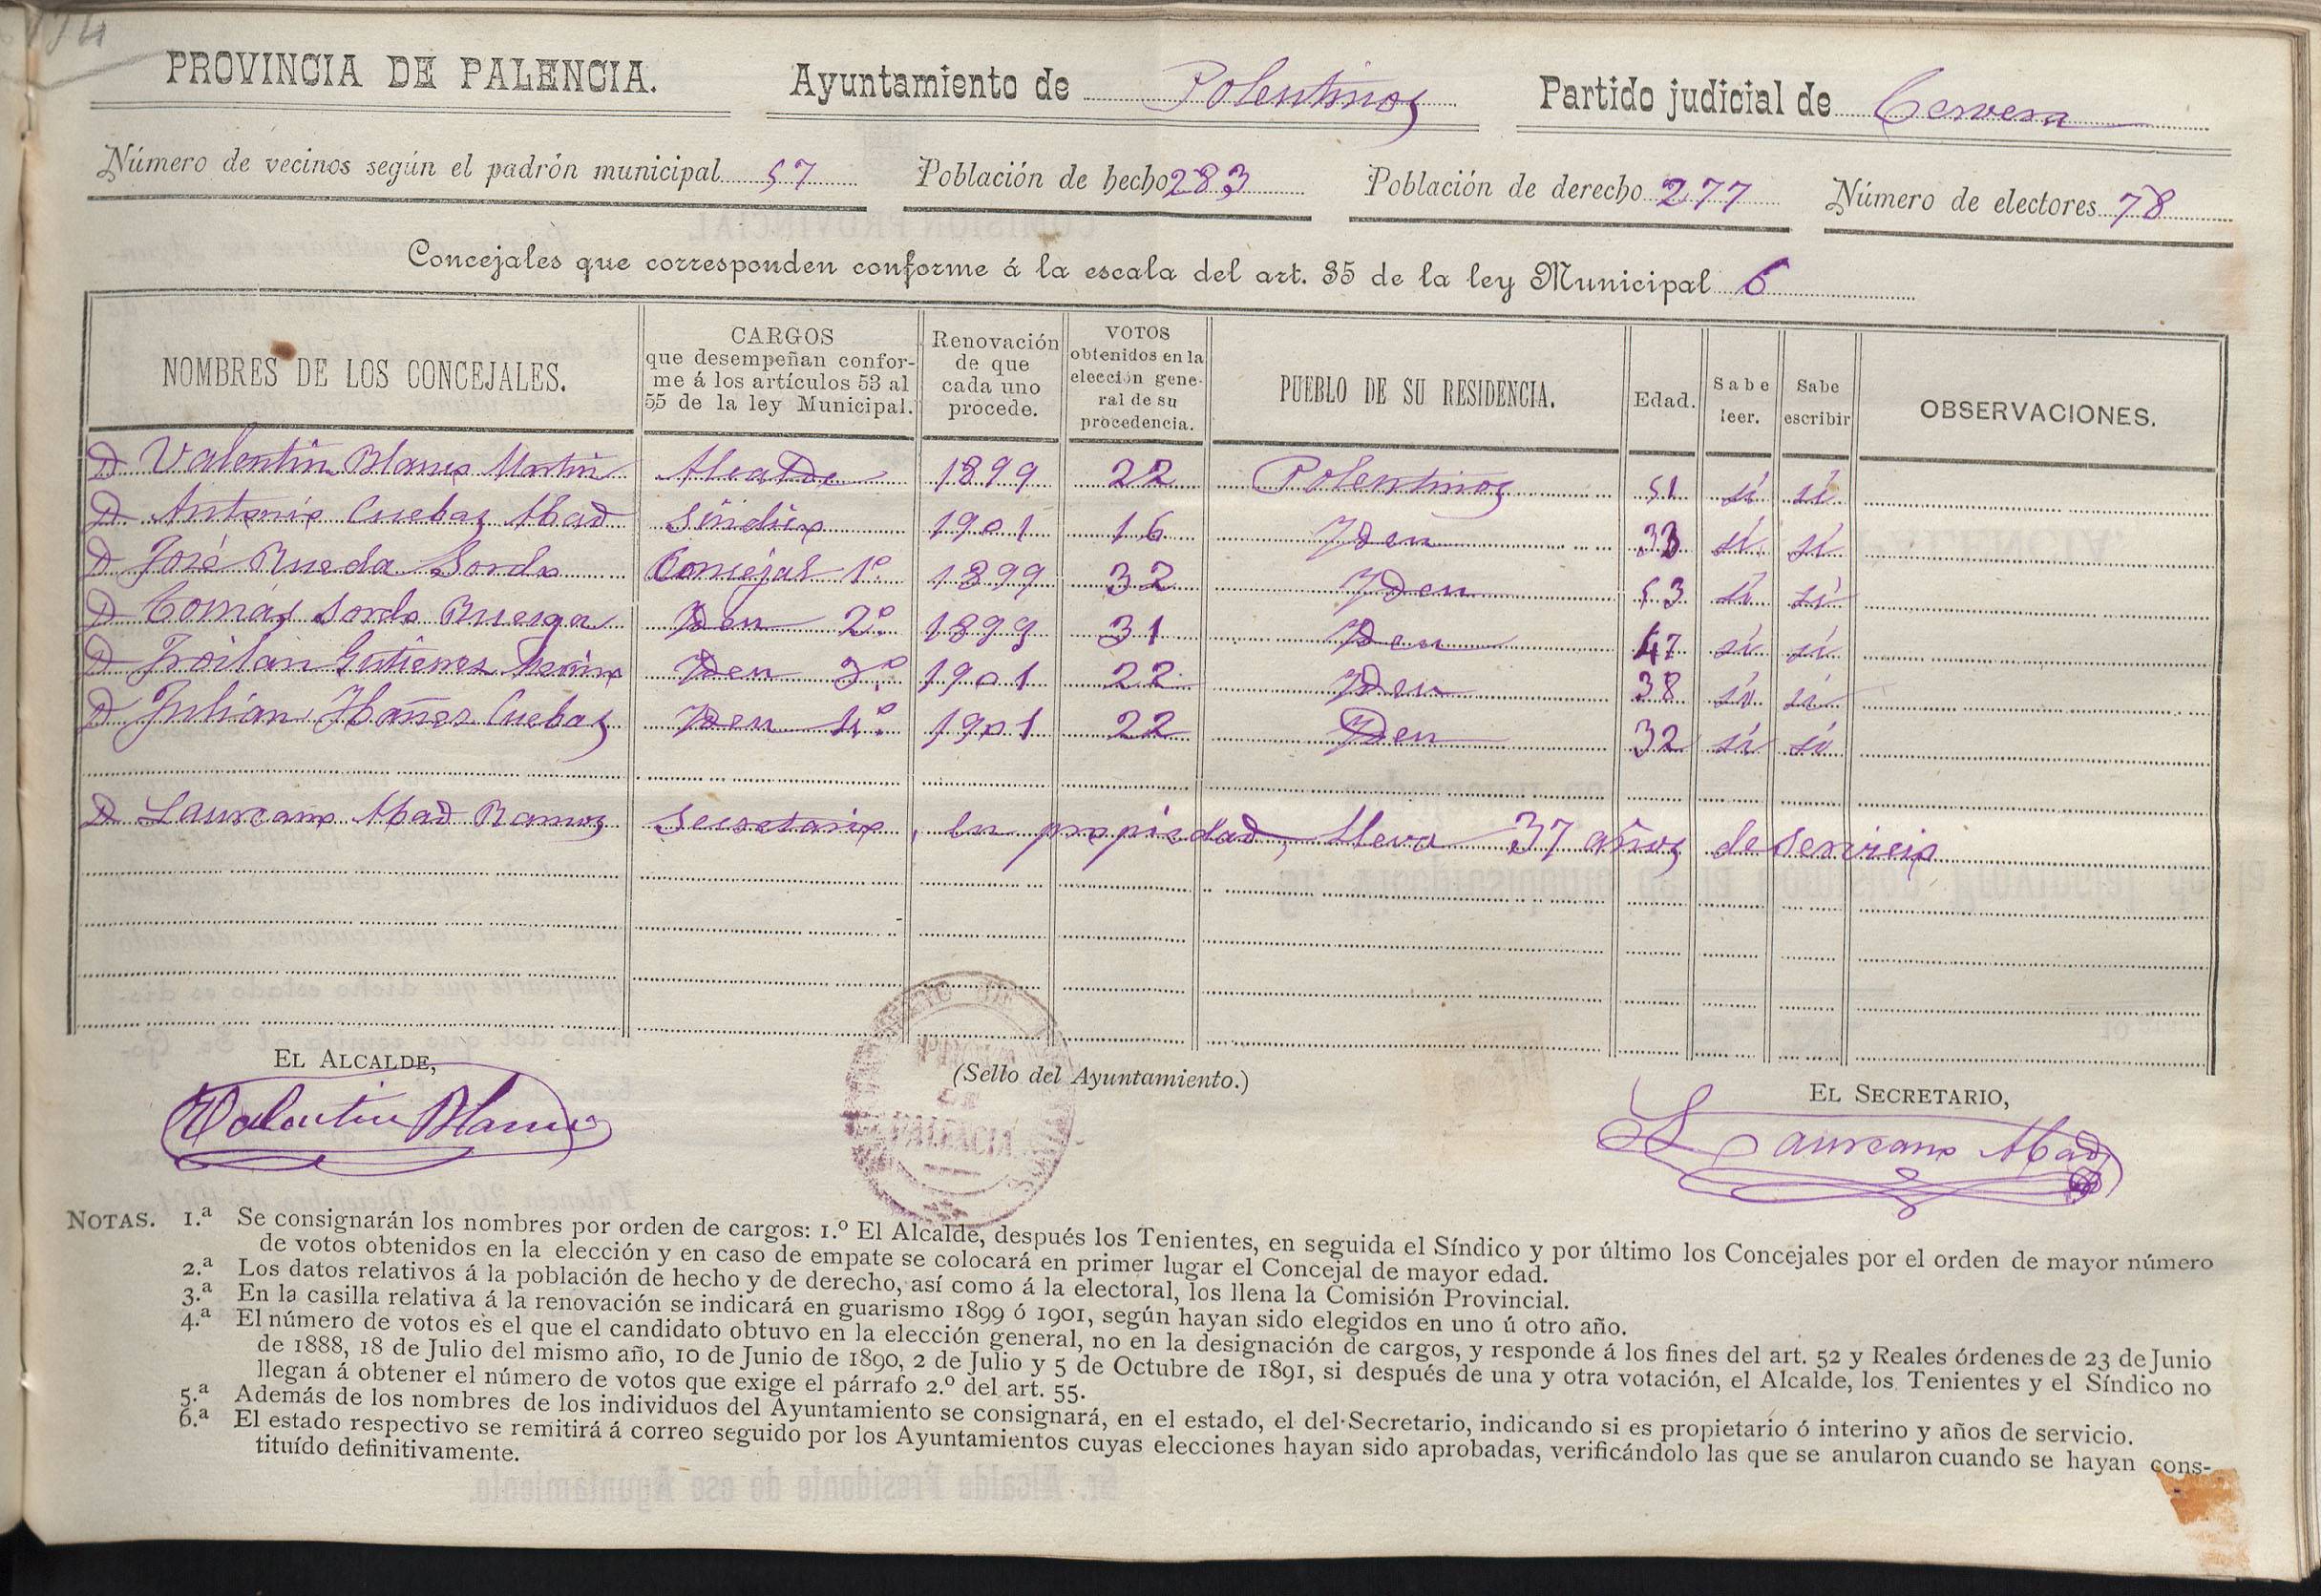 174
PROVINCIA DE PALENCIA. Ayuntamiento de Polentinos Partido judicial de Cervera
Número de vecinos según el padrón municipal 57 Población de hecho 283 Población de derecho 277 Número de electores 78
Concejales que corresponden conforme á la escala del art. 35 de la ley Municipal 6
NOMBRES DE LOS CONCEJALES.
CARGOS
que desempeñan confor-
me á los artículos 53 al
55 de la ley Municipal.
Renovación
de que
cada uno
procede.
VOTOS
obtenidos en la
elección gene-
ral de su
procedencia.
PUEBLO DE SU RESIDENCIA.
Edad.
Sabe
leer.
Sabe
escribir
OBSERVACIONES.
D Valentín Blanco Martín Alcalde 1899 22 Polentinos 51 sí sí
D Antonio Cuebas Abad Síndico 1901 16 Yden 33 sí sí
D José Rueda Sordo Consejal 1º. 1899 32 Yden 53 sí sí
D Tomás Sordo Yden 2º. 1899 31 Yden 47 sí sí
D Froilán Gutierrez Merino Yden 3.º 1901 22 Yden 38 sí sí
D Julián Ybáñez Cuebas Yden 4.º 1901 22 Yden 32 sí sí
D Laureano Abad Ramos Secretario, en propiedad, lleva 37 años de servicio
EL ALCALDE,
Valentin Blanco
(Sello del Ayuntamiento.)
PALENCIA
EL SECRETARIO,
Laureano Abad
NOTAS. 1.ª Se consignarán los nombres por orden de cargos: 1.º El Alcalde, después los Tenientes, en seguida el Síndico y por último los Concejales por el orden de mayor número
de votos obtenidos en la elección y en caso de empate se colocará en primer lugar el Concejal de mayor edad.
2.ª Los datos relativos á la población de hecho y de derecho, así como á la electoral, los llena la Comisión Provincial.
3.ª En la casilla relativa á la renovación se indicará en guarismo 1899 ó 1901, según hayan sido elegidos en uno ú otro año.
4.ª El número de votos es el que el candidato obtuvo en la elección general, no en la designación de cargos, y responde á los fines del art. 52 y Reales órdenes de 23 de Junio
de 1888, 18 de Julio del mismo año, 10 de Junio de 1890, 2 de Julio y 5 de Octubre de 1891, si después de una y otra votación, el Alcalde, los Tenientes y el Síndico no
llegan á obtener el número de votos que exige el párrafo 2.º del art. 55.
5.ª Además de los nombres de los individuos del Ayuntamiento se consignará, en el estado, el del Secretario, indicando si es propietario ó interino y años de servicio.
6.ª El estado respectivo se remitirá á correo seguido por los Ayuntamientos cuyas elecciones hayan sido aprobadas, verificándolo las que se anularon cuando se hayan cons-
tituído definitivamente.